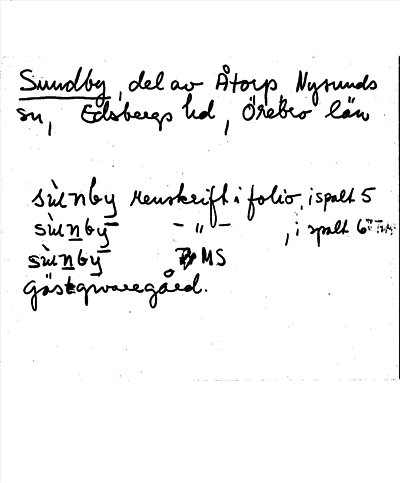 Sundby, del av Åtorp, Nysunds
sn, Edsbergs hd, Örebro län
sùnby renskrift i folio, i spalt 5
sùnby - " - , i spalt 6
sùnby MS
gästgivaregård.